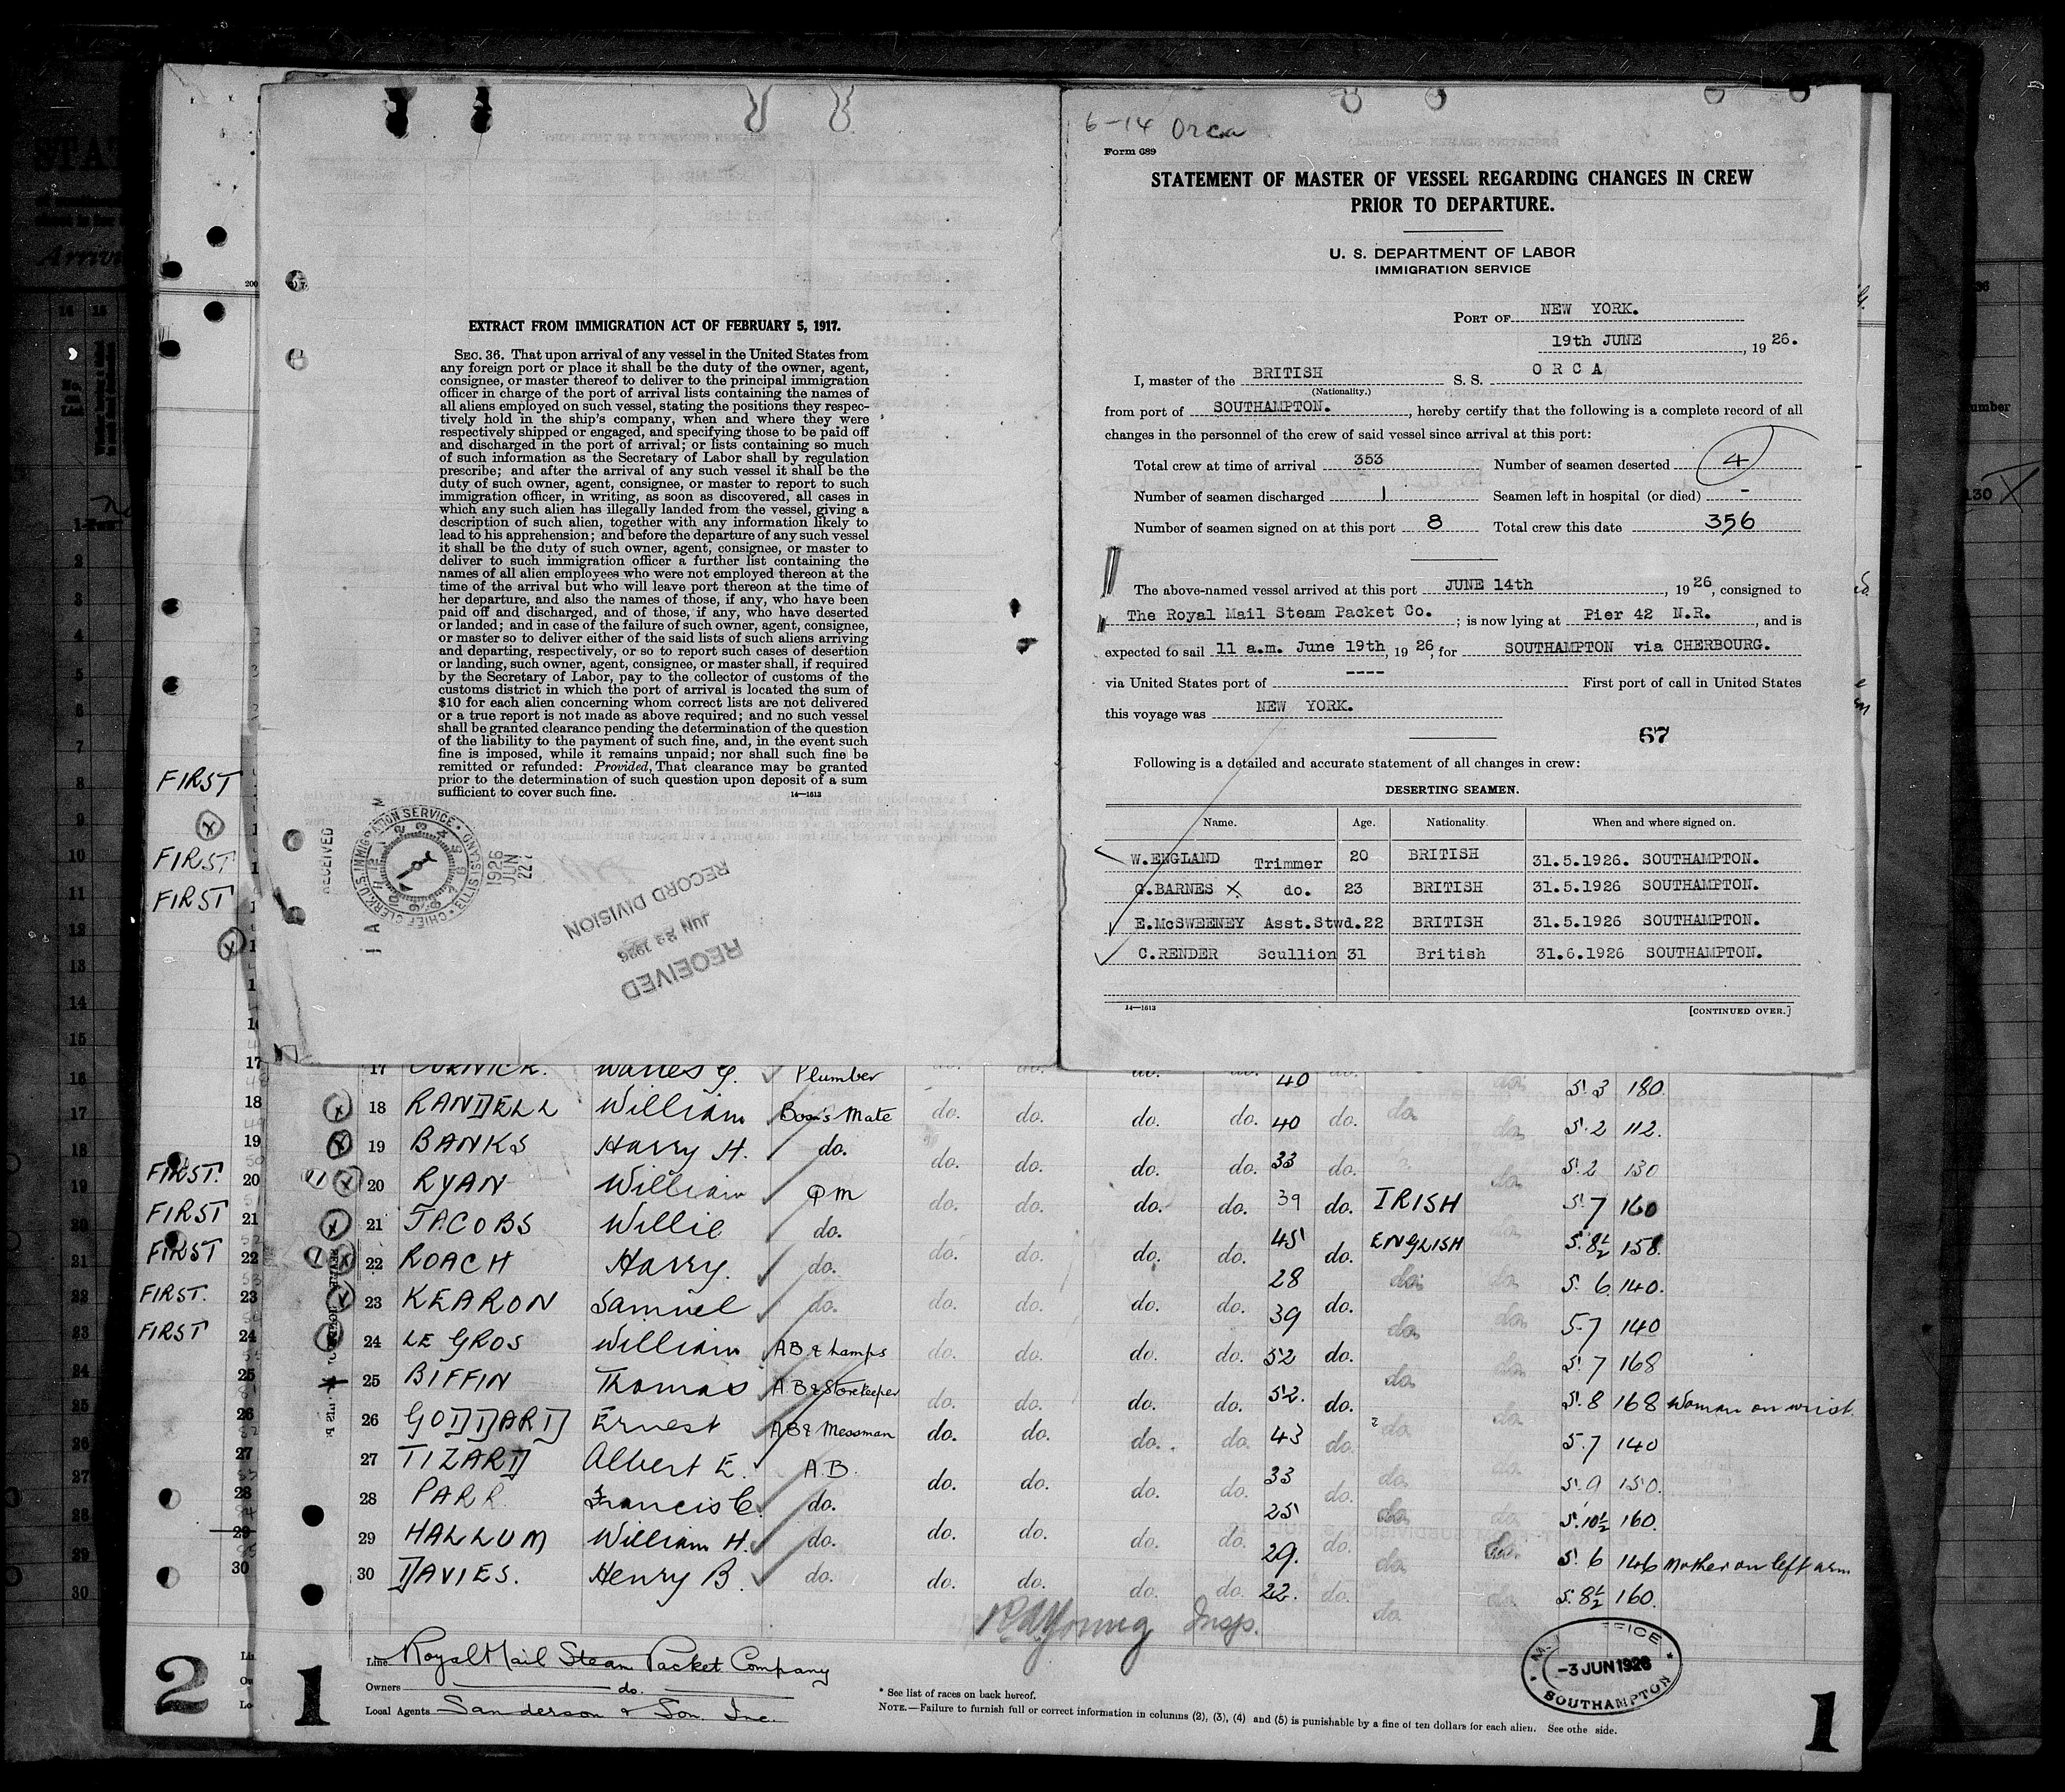 EXTRACT FROM IMMIGRATION ACT OF FEBRUARY 5, 1917.
SEC. 36. That upon arrival of any vessel in the United States from
any foreign port or place it shall be the duty of the owner, agent,
consignee, or master thereof to deliver to the principal immigration
officer in charge of the port of arrival lists containing the names of
all aliens employed on such vessel, stating the positions they respec-
tively hold in the ship's company, when and where they were
respectively shipped or engaged, and specifying those to be paid off
and discharged in the port of arrival; or lists containing so much
of such information as the Secretary of Labor shall by regulation
prescribe; and after the arrival of any such vessel it shall be the
duty of such owner, agent, consignee, or master to report to such
immigration officer, in writing, as soon as discovered, all cases in
which any such alien has illegally landed from the vessel, giving a
description of such alien, together with any information likely to
lead to his apprehension; and before the departure of any such vessel
it shall be the duty of such owner, agent, consignee, or master to
deliver to such immigration officer a further list containing the
names of all alien employees who were not employed thereon at the
time of the arrival but who will leave port thereon at the time of
her departure, and also the names of those, if any, who have been
paid off and discharged, and of those, if any, who have deserted
or landed; and in case of the failure of such owner, agent, consignee,
or master so to deliver either of the said lists of such aliens arriving
and departing, respectively, or so to report such cases of desertion
or landing, such owner, agent, consignee, or master shall, if required
by the Secretary of Labor, pay to the collector of customs of the
customs district in which the port of arrival is located the sum of
$10 for each alien concerning whom correct lists are not delivered
or a true report is not made as above required; and no such vessel
shall be granted clearance pending the determination of the question
of the liability to the payment of such fine, and, in the event such
fine is imposed, while it remains unpaid; nor shall such fine be
remitted or refunded: Provided, That clearance may be granted
prior to the determination of such question upon deposit of a sum
sufficient to cover such fine.
14—1613
RECEIVED
CHIEF CLERK U.S. IMMIGRATION SERVICE · ELLIS ISLAND
1926 JUN 22
RECEIVED
JUN 22 1926
RECORD DIVISION
6-14 Orca
Form 689
STATEMENT OF MASTER OF VESSEL REGARDING CHANGES IN CREW
PRIOR TO DEPARTURE.
U. S. DEPARTMENT OF LABOR
IMMIGRATION SERVICE
PORT OF NEW YORK.
19th JUNE, 1926.
I, master of the BRITISH S. S. ORCA
(Nationality.)
from port of SOUTHAMPTON., hereby certify that the following is a complete record of all
changes in the personnel of the crew of said vessel since arrival at this port:
Total crew at time of arrival 353 Number of seamen deserted 4
Number of seamen discharged 1 Seamen left in hospital (or died) -
Number of seamen signed on at this port 8 Total crew this date 356
The above-named vessel arrived at this port JUNE 14th, 1926, consigned to
The Royal Mail Steam Packet Co.; is now lying at Pier 42 N.R., and is
expected to sail 11 a.m. June 19th, 1926, for SOUTHAMPTON via CHERBOURG.
via United States port of ---- First port of call in United States
this voyage was NEW YORK.
67
Following is a detailed and accurate statement of all changes in crew:
DESERTING SEAMEN.
Name. Age. Nationality When and where signed on.
W.ENGLAND Trimmer 20 BRITISH 31.5.1926. SOUTHAMPTON.
G.BARNES X do. 23 BRITISH 31.5.1926 SOUTHAMPTON.
E.McSWEENEY Asst.Stwd.22 BRITISH 31.5.1926 SOUTHAMPTON.
C.RENDER Scullion 31 British 31.6.1926 SOUTHAMPTON.
14—1613 [CONTINUED OVER.]
FIRST
FIRST
FIRST
17 CORNICK. Plumber do. do. do. do. 40 do. do. do. 5.3 180.
18 RANDELL William Bosn's Mate do. do. do. do. 40 do. do. do. 5.2 112.
19 BANKS Harry H. do. do. do. do. do. 33 do. do. 5.2 130
FIRST. 20 RYAN William QM do. do. do. do. 39 do. IRISH 5.7 160
FIRST 21 JACOBS Willie do. do. do. do. do. 45 do. ENGLISH 5.8½ 158.
FIRST 22 ROACH Harry. do. do. do. do. do. 28 do. do. do. 5.6. 140.
FIRST. 23 KEARON Samuel do. do. do. do. do. 39 do. do. do. 5.7 140
FIRST 24 LE GROS William AB & Lamps do. do. do. do. 52 do. do. do. 5.7 168
25 BIFFIN Thomas A.B & Storekeeper do. do. do. do. 52. do. do. do. 5.8 168 Woman on wrist.
26 GODDARD Ernest AB & Messman do. do. do. do. 43 do. do. do. 5.7 140
27 TIZARD Albert E. A.B. do. do. do. do. 33 do. do. do. 5.9 150.
28 PARR. Francis C. do. do. do. do. do. 25 do. do. do. 5.10½ 160.
29 HALLUM William H. do. do. do. do. do. 29. do. do. do. 5.6 146 Mother on left arm
30 DAVIES. Henry B. do. do. do. do. do. 22. do. do. do. 5.8½ 160.
Young Insp.
Line Royal Mail Steam Packet Company
Owners do.
Local Agents Sanderson & Son. Inc.
* See list of races on back hereof.
NOTE.—Failure to furnish full or correct information in columns (2), (3), (4) and (5) is punishable by a fine of ten dollars for each alien. See othe side.
-3 JUN 1926
SOUTHAMPTON
2
1
1